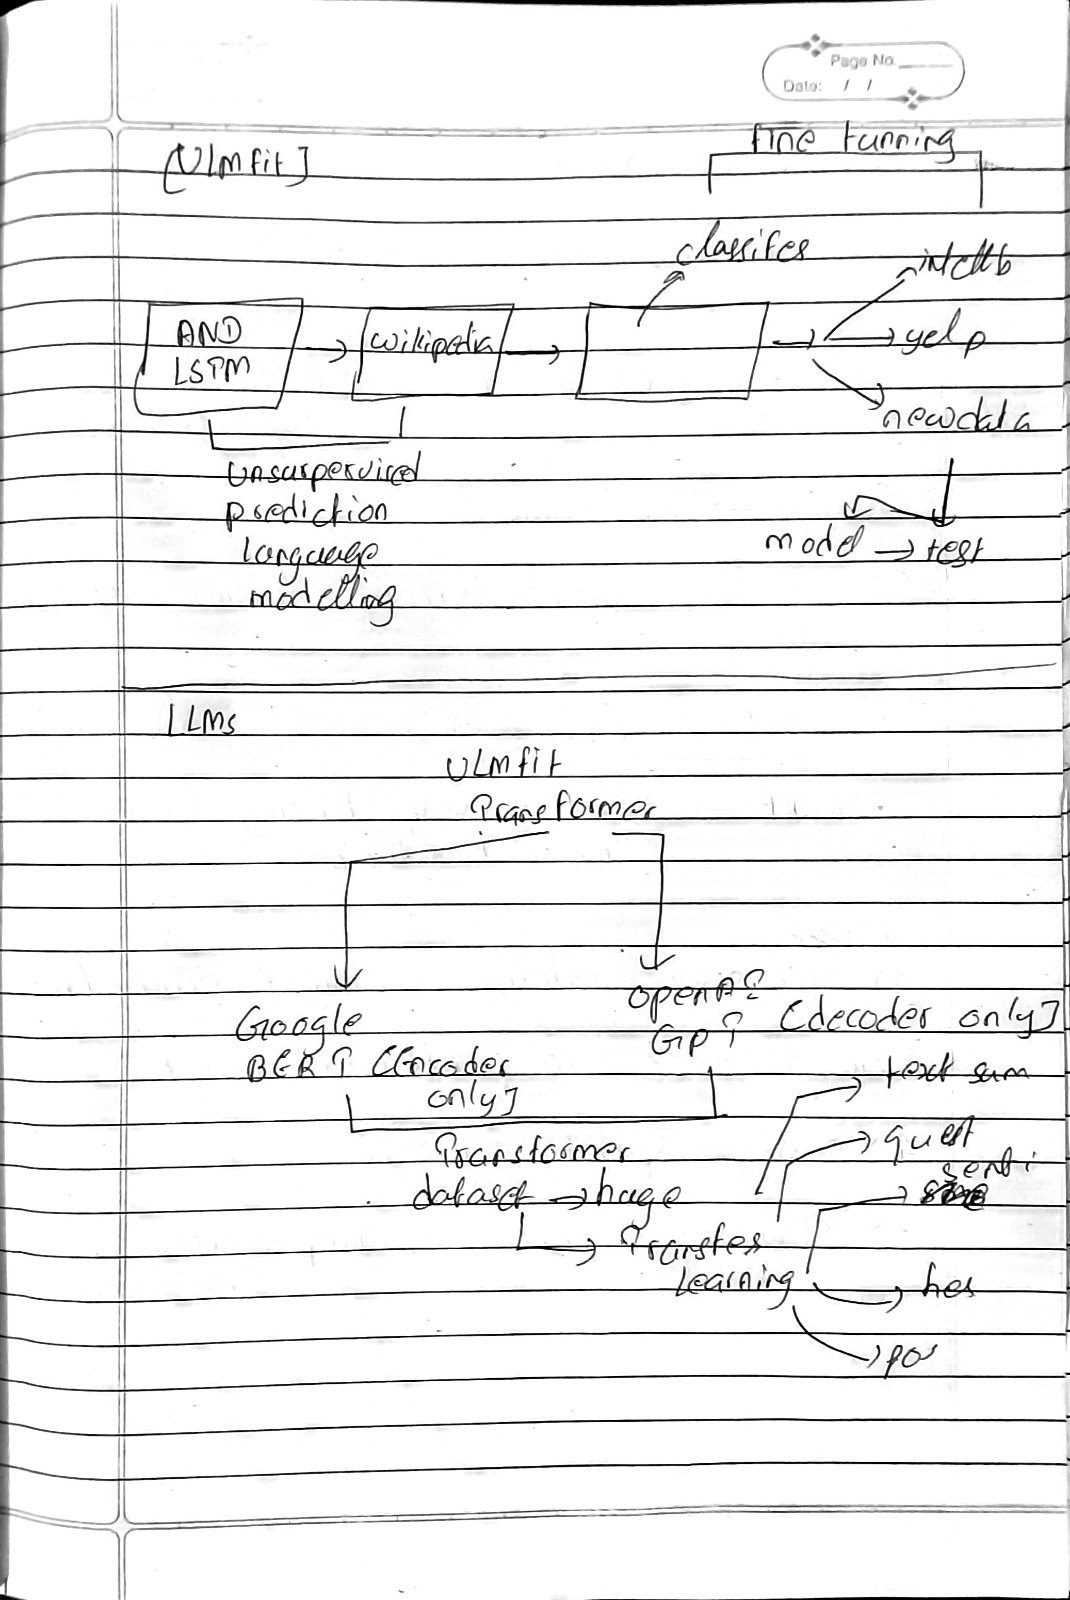 Page No.
Date: / /
fine tunning
[ULMfit]
classifes
AND
LSTM
wikipedia
yelp
newdata
unsurpervised
prediction
language
modelling
model → test
LLMs
ULMfit
Transformer
Google
BERT [Encoder
only]
OpenAI
GPT [decoder only]
Transformer
dataset → huge
Transfes
Learning
text sum
quest
senti
pos